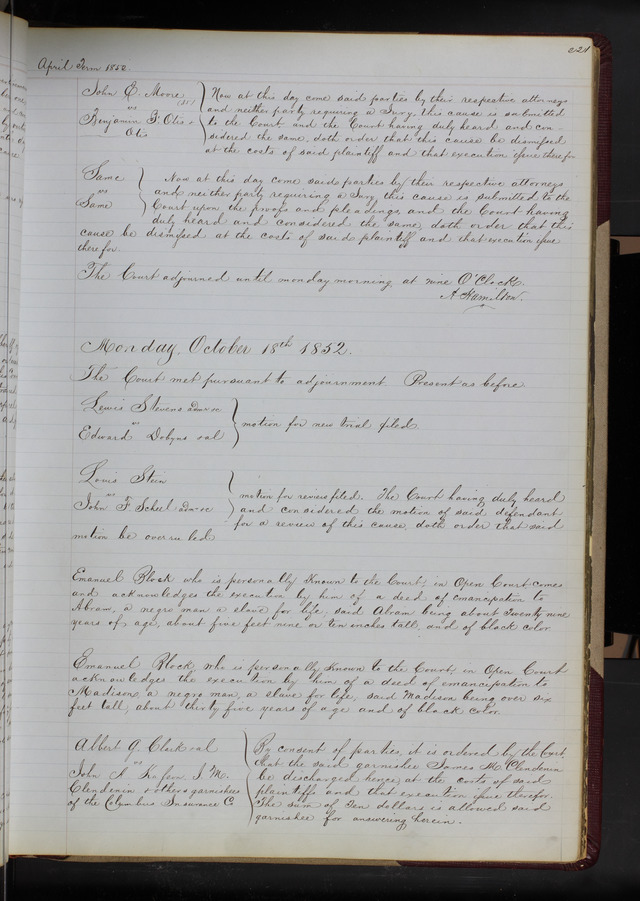 April Term 1852
221
John C. Moore
(181)
vs
Benjamin F. Otis &
Otis
Now at this day come said parties by their respective attorneys
and neither party requiring a Jury this cause is submitted
to the Court and the Court having duly heard and con-
sidered the same, doth order that this cause be dismissed
at the costs of said plaintiff and that execution issue therefor
Same
vs
Same
Now at this day come said parties by their respective attorneys
and neither party requiring a Jury this cause is submitted to the
Court upon the proofs and pleadings and the Court having
duly heard and considered the same, doth order that this
cause be dismissed at the costs of said plaintiff and that execution issue
therefor.
The Court adjourned until monday morning at nine O'Clock.
A Hamilton.
Monday, October 18th 1852.
The Court met pursuant to adjournment Present as before
Lewis Stevens admr &c
vs
Edward Dobyns &al
motion for new trial filed
Louis Stein
vs
John F Scheel adm &c
motion for review filed. The Court having duly heard
and considered the motion of said defendant
for a review of this cause doth order that said
motion be overruled
Emanuel Block who is personally Known to the Court, in Open Court comes
and acknowledges the execution by him of a deed of emancipation to
Abram, a negro man a slave for life, said Abram being about Twenty nine
years of age, about five feet nine or ten inches tall, and of black color.
Emanuel Block, who is personally Known to the Court, in Open Court
acknowledges the execution by him of a deed of emancipation to
Madison, a negro man, a slave for life, said Madison being over six
feet tall, about thirty five years of age and of black color.
Albert G. Clark &al
vs
John A J. M.
Clendenin & others garnishees
of the Columbus Insurance C
By consent of parties, it is ordered by the Court
that the said garnishee James M Clendenin
be discharged hence, at the costs of said
plaintiffs and that execution issue therefor.
The sum of Ten dollars is allowed said
garnishee for answering herein.